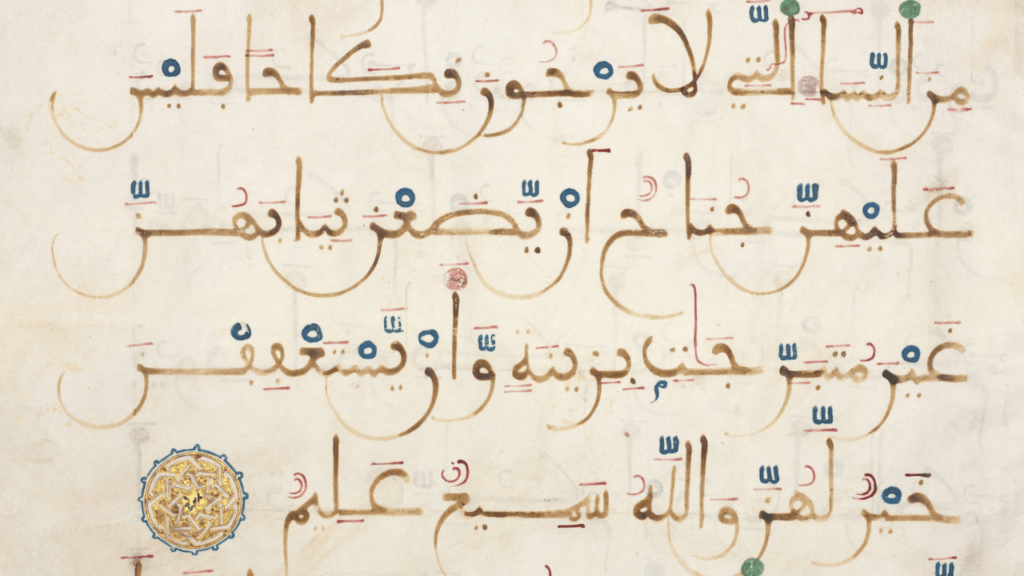 مِنَ النِّسَاءِ الَّتِي لَا يَرْجُونَ نِكَاحًا فَلَيْسَ
عَلَيْهِنَّ جُنَاحٌ أَنْ يَّضَعْنَ ثِيَابَهُنَّ
غَيْرَ مُتَبَرِّجَٰتٍ بِزِينَةٍ وَّأَنْ يَّسْتَعْفِفْنَ
خَيْرٌ لَّهُنَّ وَاللَّهُ سَمِيعٌ عَلِيمٌ